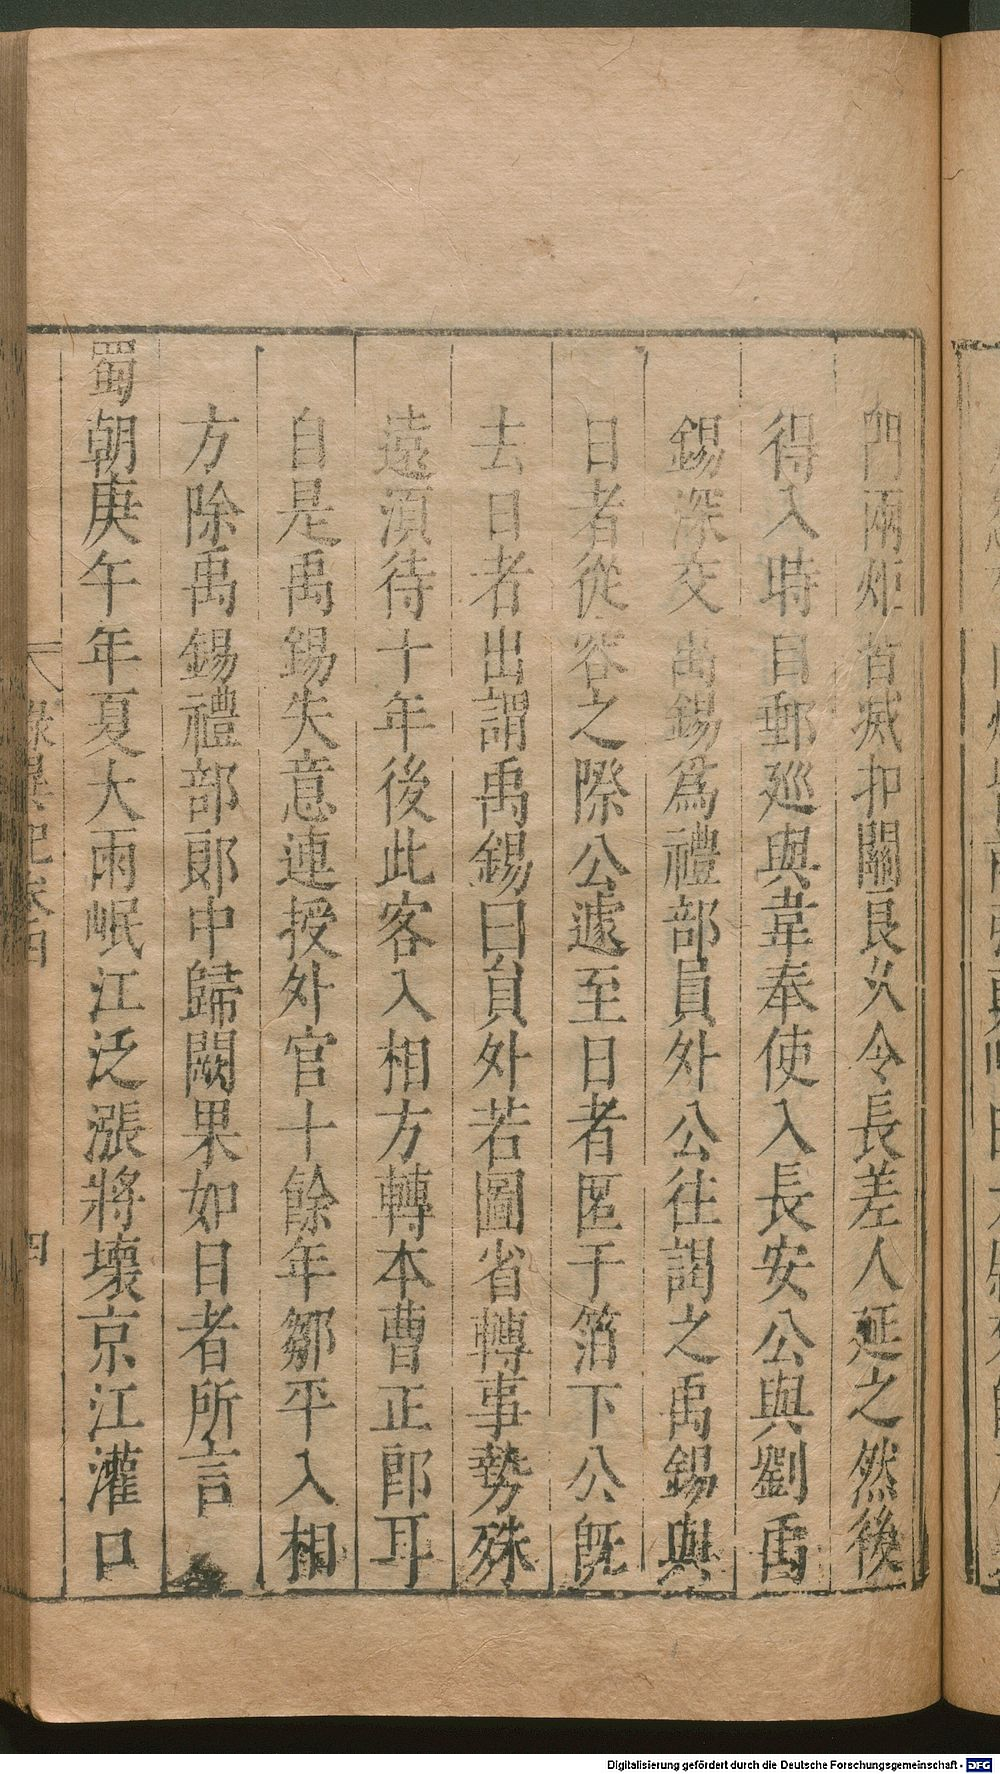 門兩炬皆滅扣關良久令長差人延之然後
得入時自郵廵與韋奉使入長安公與劉禹
錫深交禹錫爲禮部員外公往謁之禹錫與
日者從容之際公遽至日者匿于箔下公旣
去日者出謂禹錫曰員外若圖省轉事勢殊
遠須待十年後此客入相方轉本曹正郎耳
自是禹錫失意連授外官十餘年鄒平入相
方除禹錫禮部郎中歸闕果如日者所言
蜀朝庚午年夏大雨岷江泛漲將壞京江灌口
錄異記卷四
四
Digitalisierung gefördert durch die Deutsche Forschungsgemeinschaft - DFG